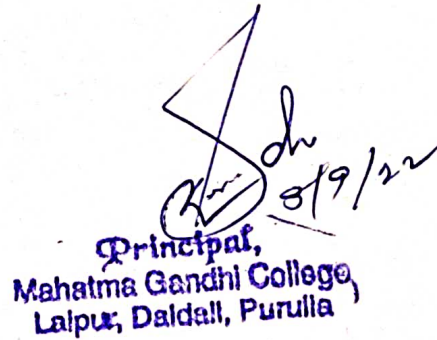 8/9/22
Principal,
Mahatma Gandhi College,
Lalpur, Daldali, Purulia